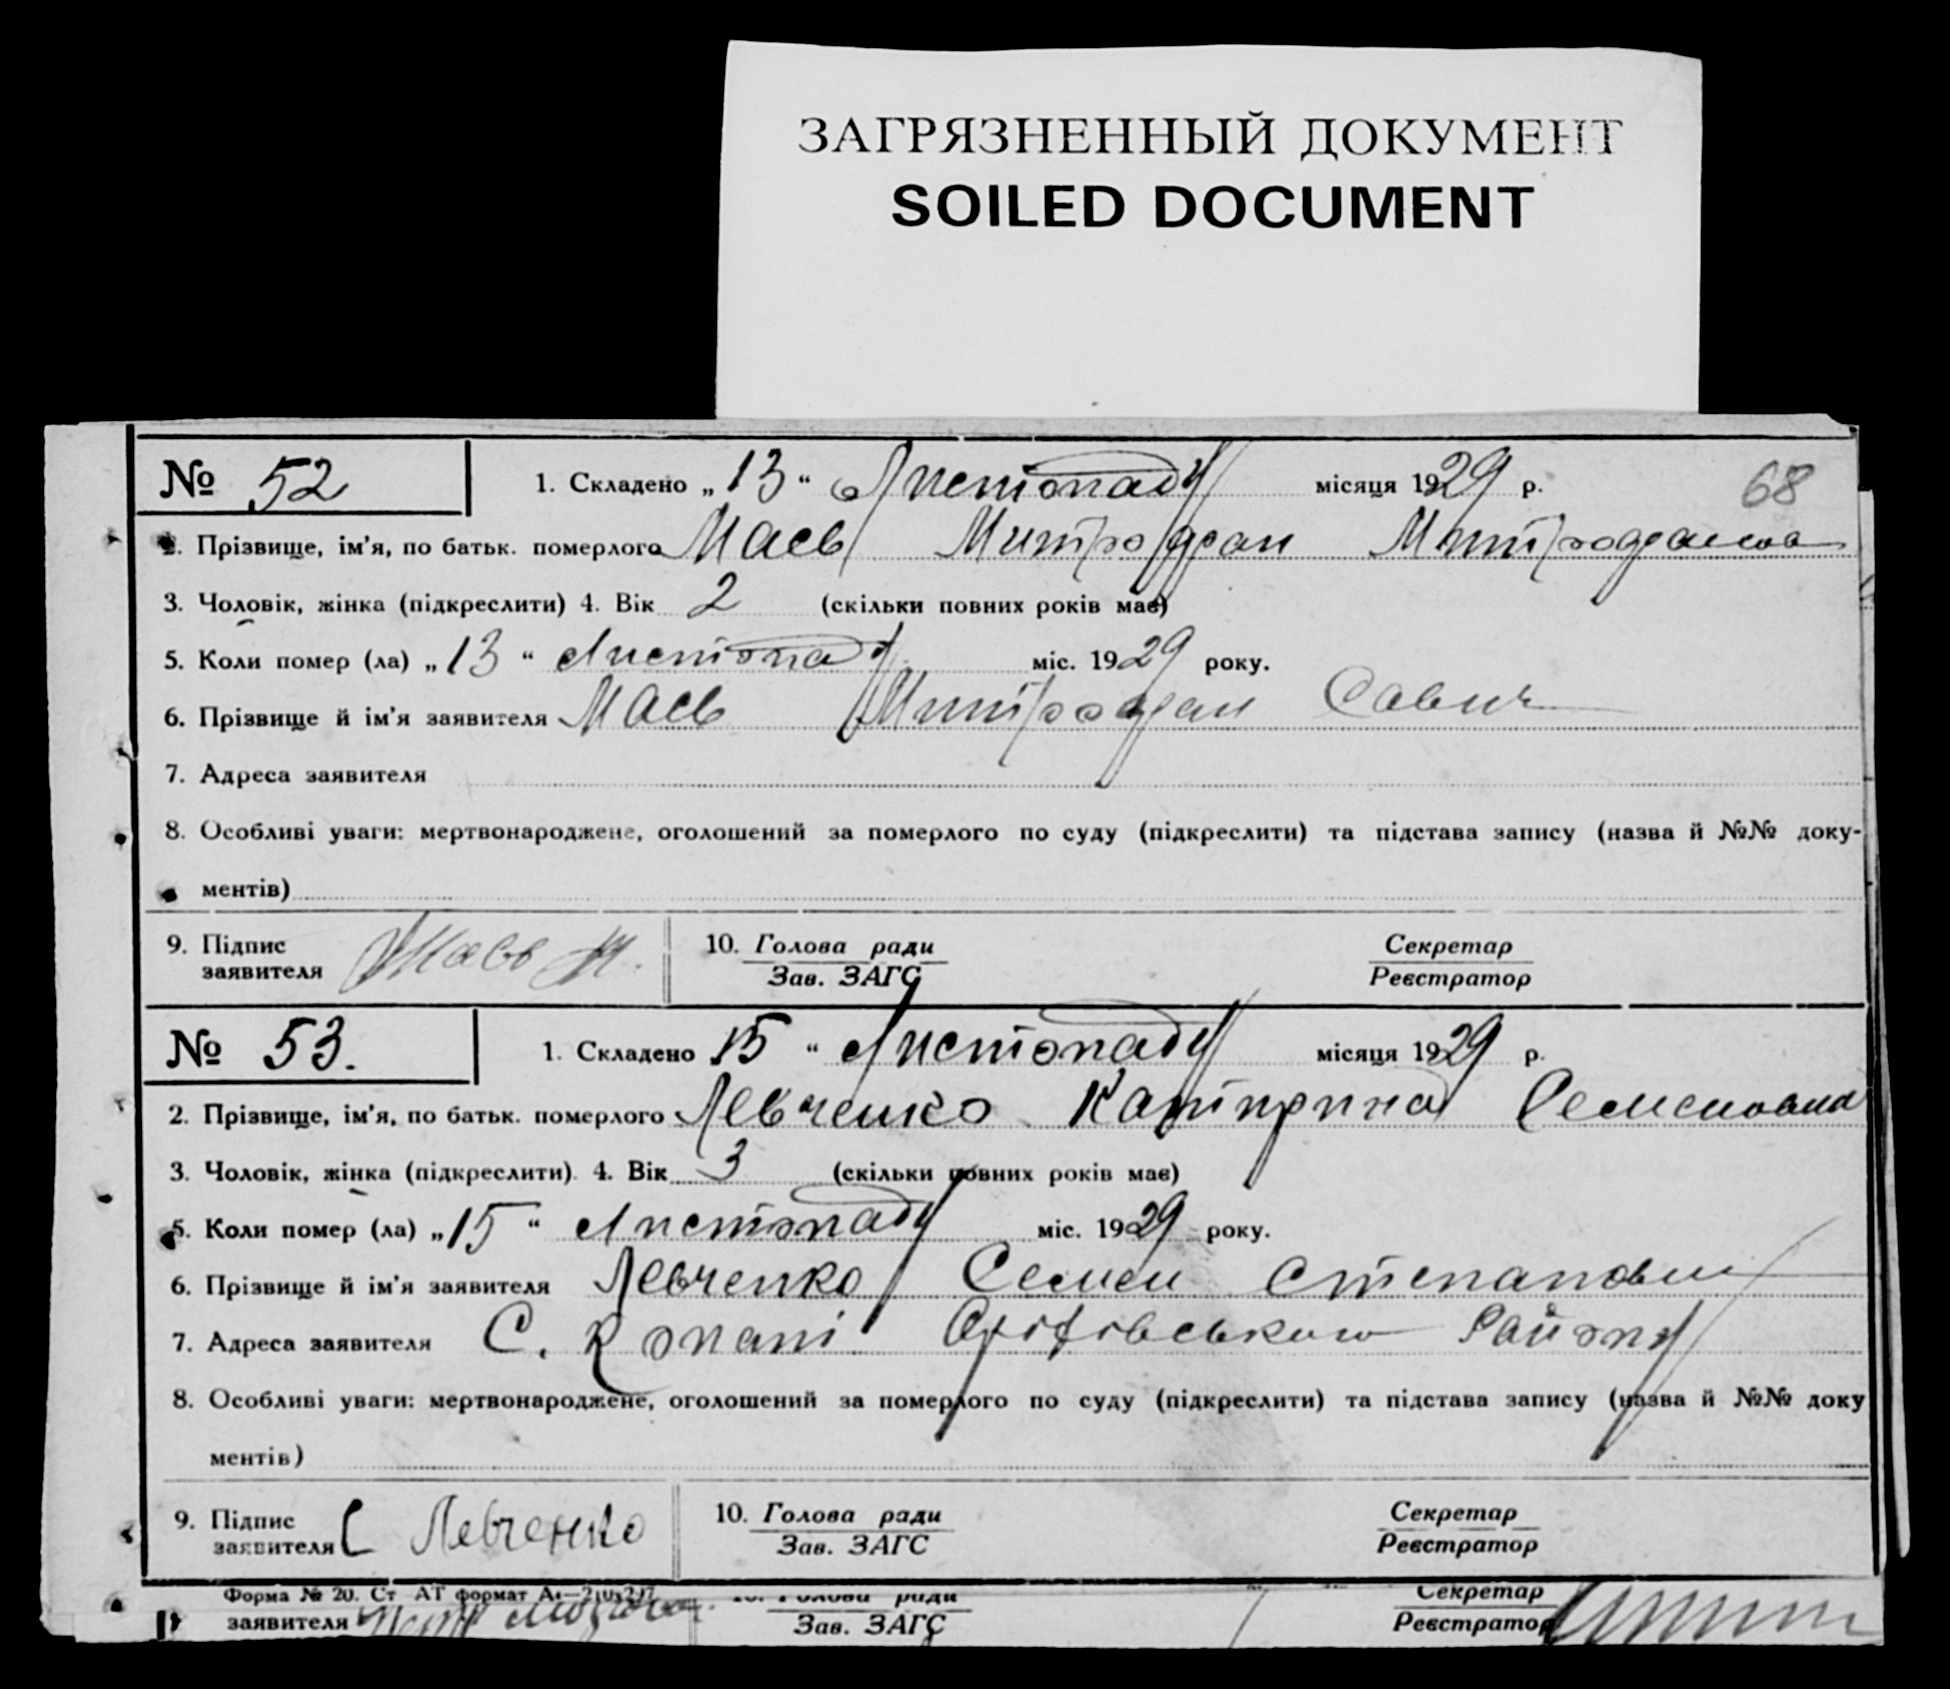 ЗАГРЯЗНЕННЫЙ ДОКУМЕНТ
SOILED DOCUMENT
68
№ 52 1. Складено „ 13 “ Листопаду місяця 1929 р.
2. Прізвище, ім’я, по батьк. померлого Маєв Митрофан
3. Чоловік, жінка (підкреслити) 4. Вік 2 (скільки повних років має)
5. Коли помер (ла) „ 13 “ Листопаду міс. 1929 року.
6. Прізвище й ім’я заявителя Маєв Митрофан Савич
7. Адреса заявителя
8. Особливі уваги: мертвонароджене, оголошений за померлого по суду (підкреслити) та підстава запису (назва й №№ доку-
ментів)
9. Підпис заявителя 10. Голова ради Секретар
Зав. ЗАГС Реєстратор
№ 53. 1. Складено 15 “ Листопаду місяця 1929 р.
2. Прізвище, ім’я, по батьк. померлого Левченко Катирина Семеновна
3. Чоловік, жінка (підкреслити). 4. Вік 3 (скільки повних років має)
5. Коли помер (ла) „ 15 “ Листопаду міс. 1929 року.
6. Прізвище й ім’я заявителя Левченко Семен Степанович
7. Адреса заявителя С. Копані Оріхівського Району
8. Особливі уваги: мертвонароджене, оголошений за померлого по суду (підкреслити) та підстава запису (назва й №№ доку
ментів)
9. Підпис заявителя С Левченко 10. Голова ради Секретар
Зав. ЗАГС Реєстратор
Форма № 20. Ст АТ формат Голова ради Секретар
заявителя Зав. ЗАГС Реєстратор